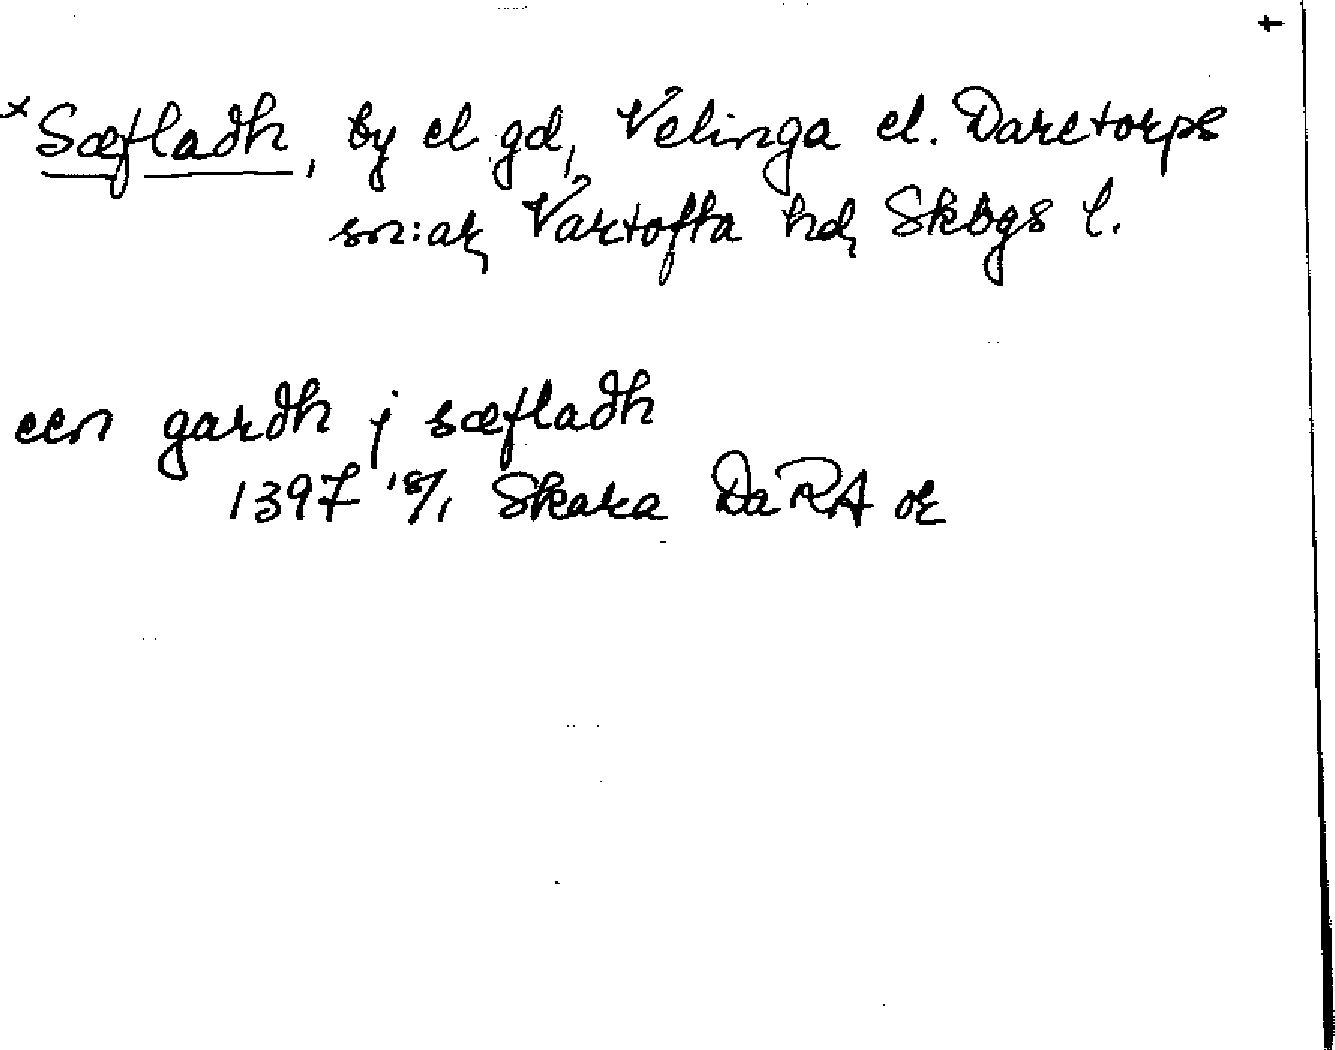 *Sæfladh, by el gd, Velinga el. Daretorps
sn:ar, Vartofta hd, Skbgs l.
een gardh j sæfladh
1397 18/1 Skara DaRA or